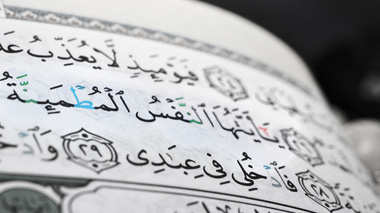 فَيَوْمَئِذٍ لَّا يُعَذِّبُ
يَـٰٓأَيَّتُهَا ٱلنَّفْسُ ٱلْمُطْمَئِنَّةُ
فَٱدْخُلِى فِى عِبَـٰدِى ٢٩ وَٱدْ